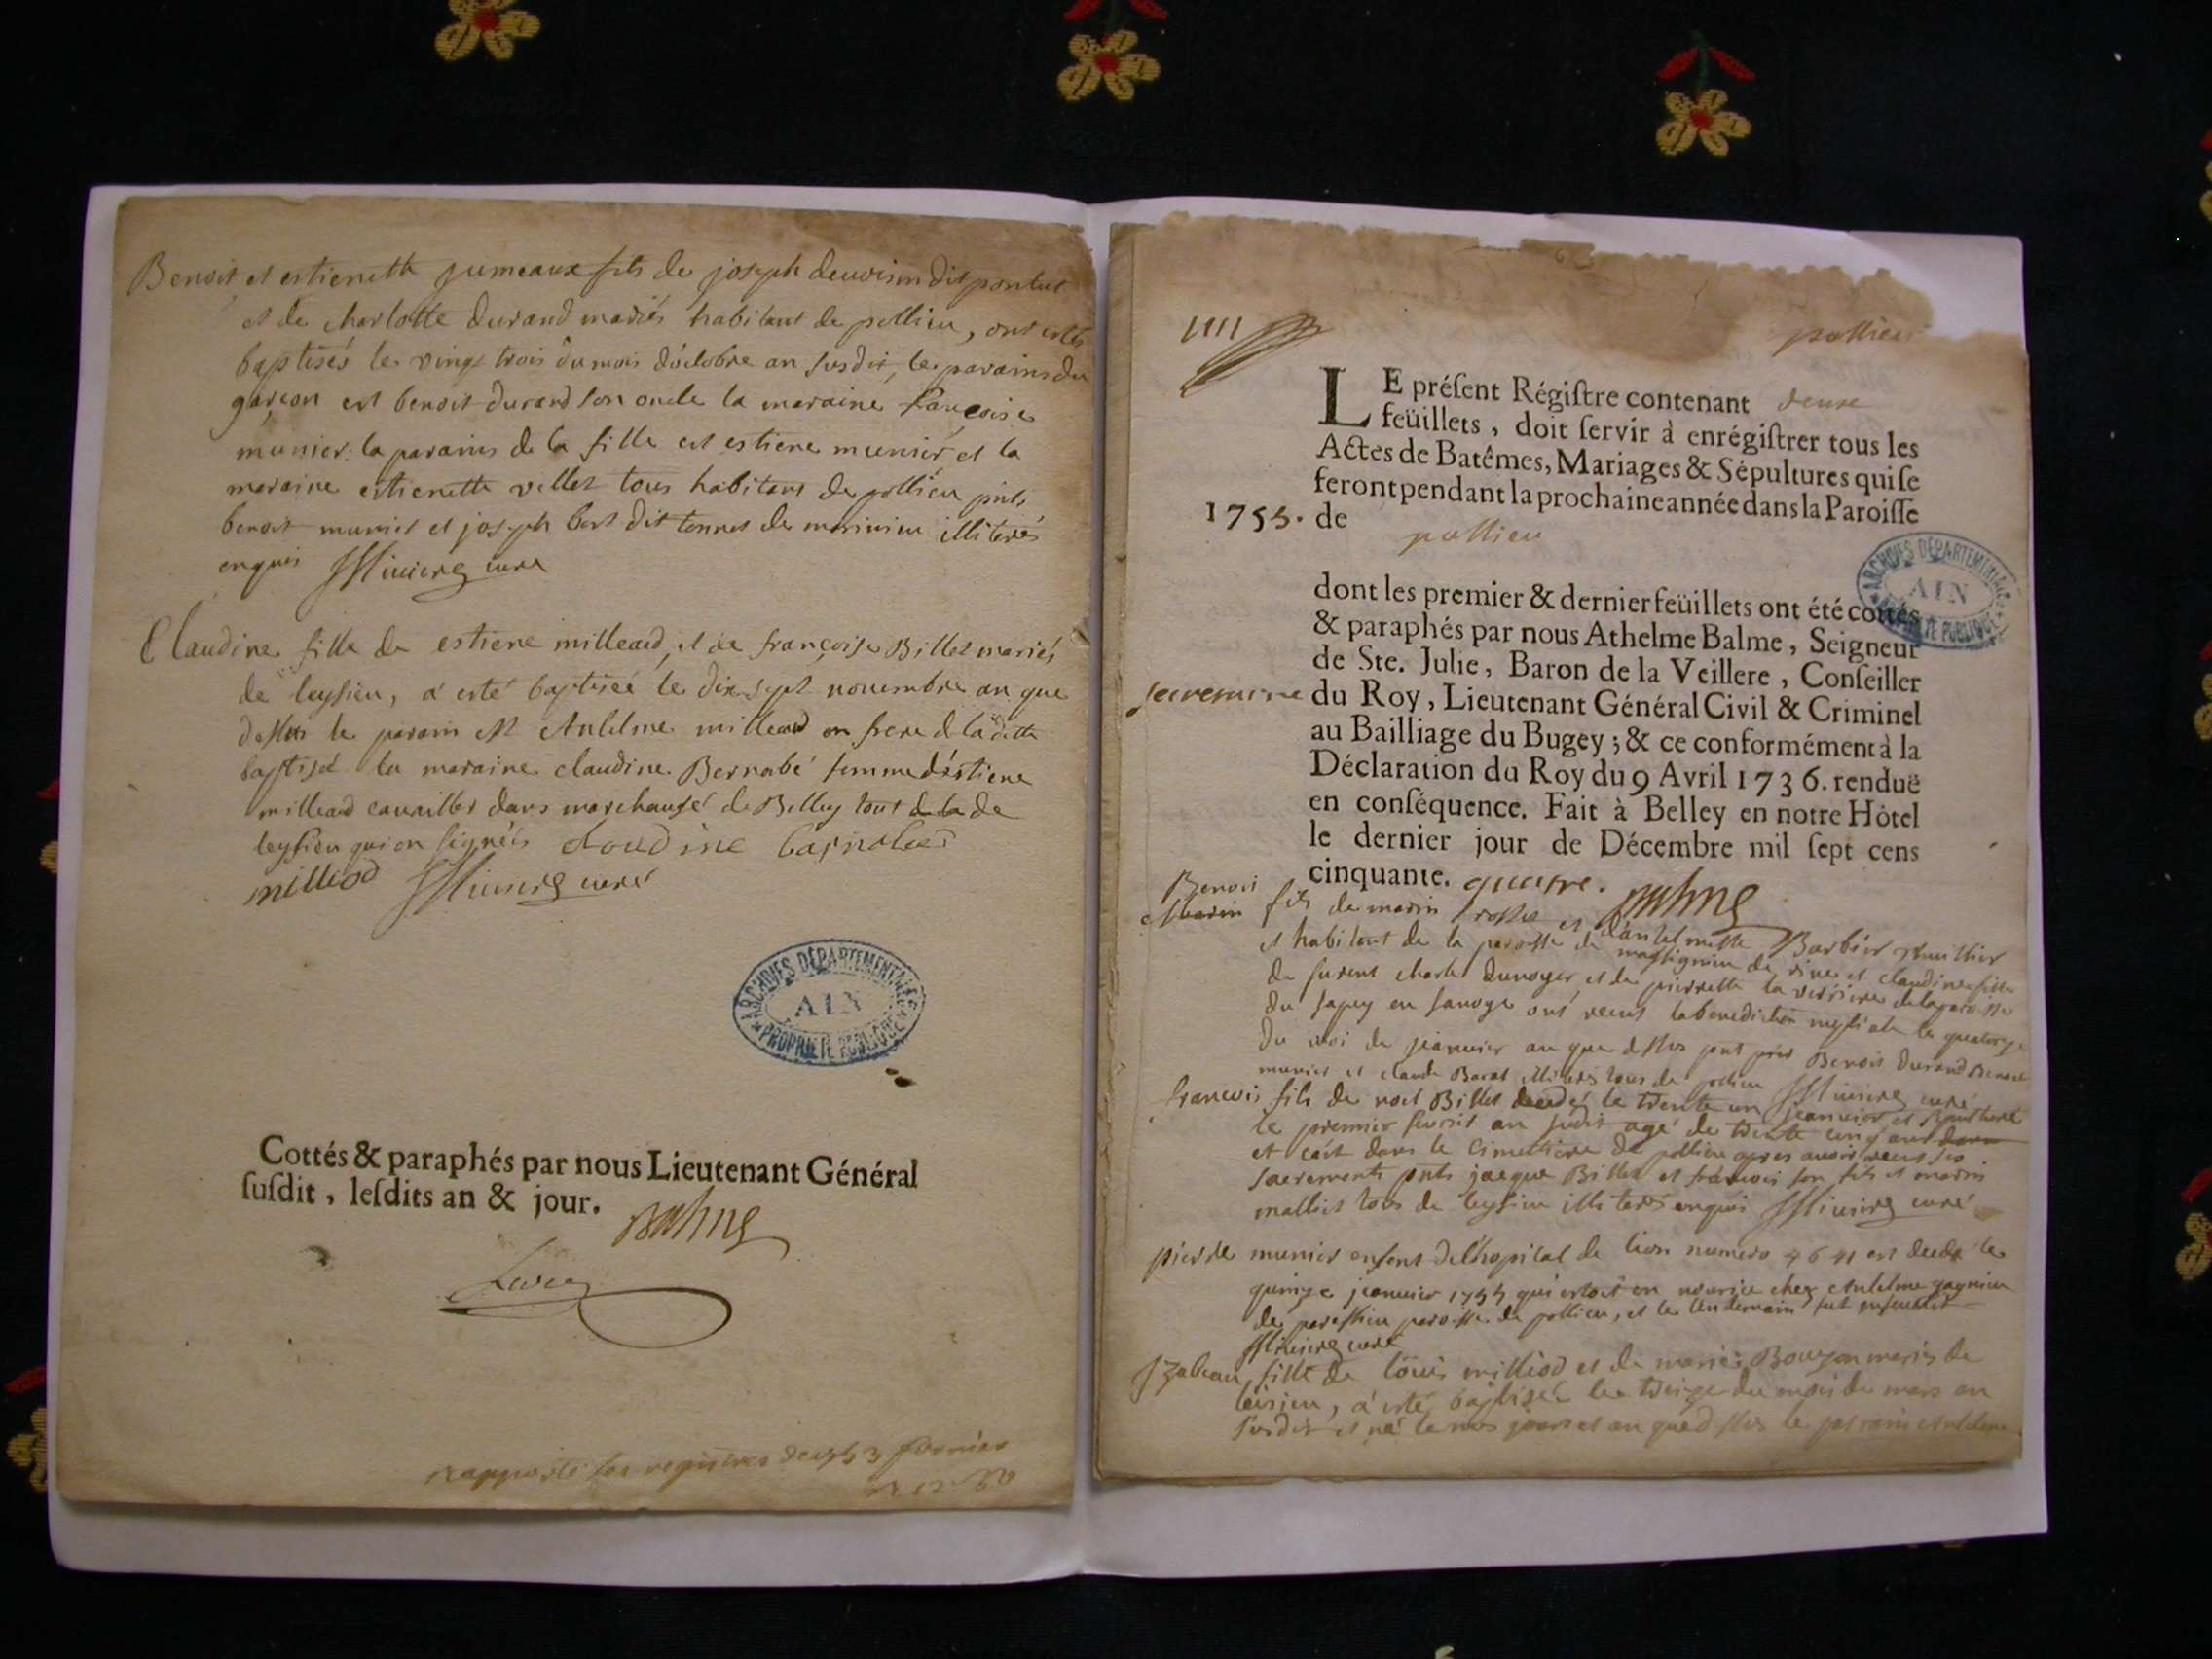 Benoit et estienette jumeaux fils de joseph deuvoisin dit pontut
et de charlotte durand mariés habitant de pollieu, ont estés
baptisés le vingt trois du mois d'octobre an susdit, le parains du
garçon est benoit durand son oncle la maraine françoise
munier: la parains de la fille est estiene munier et la
maraine estienette vellet tous habitant de pollieu pnts
benoit munier et joseph bert dit tonnet de marinieu illiterés
enquis curé
Claudine fille de estiene milleard, et de françoise Billet mariés
de leysieu, a esté baptiseé le dix sept novembre an que
dessus le parain est Anthelme milleard frere d la ditte
baptisé la maraine claudine Bernabé femme d'estiene
milleard cavallier dans marchaussé de Belley tout de la de
leysieu qui on signés claudine barnabée
milliod curé
ARCHIVES DÉPARTEMENTALES
AIN
PROPRIÉTÉ PUBLIQUE
Cottés & paraphés par nous Lieutenant Général
susdit, lesdits an & jour. Balme
rapporté les registres de 1753 fevrier
1111
pollieu
LE présent Régistre contenant deuxe
feüillets, doit servir à enrégistrer tous les
Actes de Batêmes, Mariages & Sépultures qui se
feront pendant la prochaine année dans la Paroisse
1755. de
pollieu
ARCHIVES DÉPARTEMENTALES
AIN
PROPRIÉTÉ PUBLIQUE
dont les premier & dernier feüillets ont été cottés
& paraphés par nous Athelme Balme, Seigneur
de Ste. Julie, Baron de la Veillere, Conseiller
du Roy, Lieutenant Général Civil & Criminel
au Bailliage du Bugey; & ce conformément à la
Déclaration du Roy du 9 Avril 1736. renduë
en conséquence. Fait à Belley en notre Hôtel
le dernier jour de Décembre mil sept cens
cinquante. quatre. Balme
Benoit
Marin fils de marin rosset et d'antelmette Barbier
et habitant de la paroisse de massignieu de rive et claudine fille
de furent charle dunoyer et de pierrette la verriere de la paroisse
du sapey en savoye ont receus la benediction nuptiale le quatorze
du moi de jeanvier an que dessus pnt Benoit durand Benoit
munier et claude Barat illiterés tous de pollieu curé
francois fils de noel Billet decedé le trente un jeanvier et sepulturé
le premier fevrier an sudit agé de trente cinq ans dans
et ce dans le cimettiere de pollieu apres avoir receus ses
sacrements pnts jacque Billet et francois son fils et marin
mallet tous de leysieu illiterés enquis curé
pierre munier enfent de l'hopital de lion numero 4641 est decedé le
quinze jeanvier 1755 qui estoit en nourice chez Antelme gagnieu
de paressieu paroisse de pollieu, et le lendemain fut ensevelit
curé
Izabeau fille de louis milliod et de marie Bouzon mariés de
leisieu, a esté baptiseé le treize du mois de mars an
susdit et né le mes jours et an que dessus le parrain Antelme